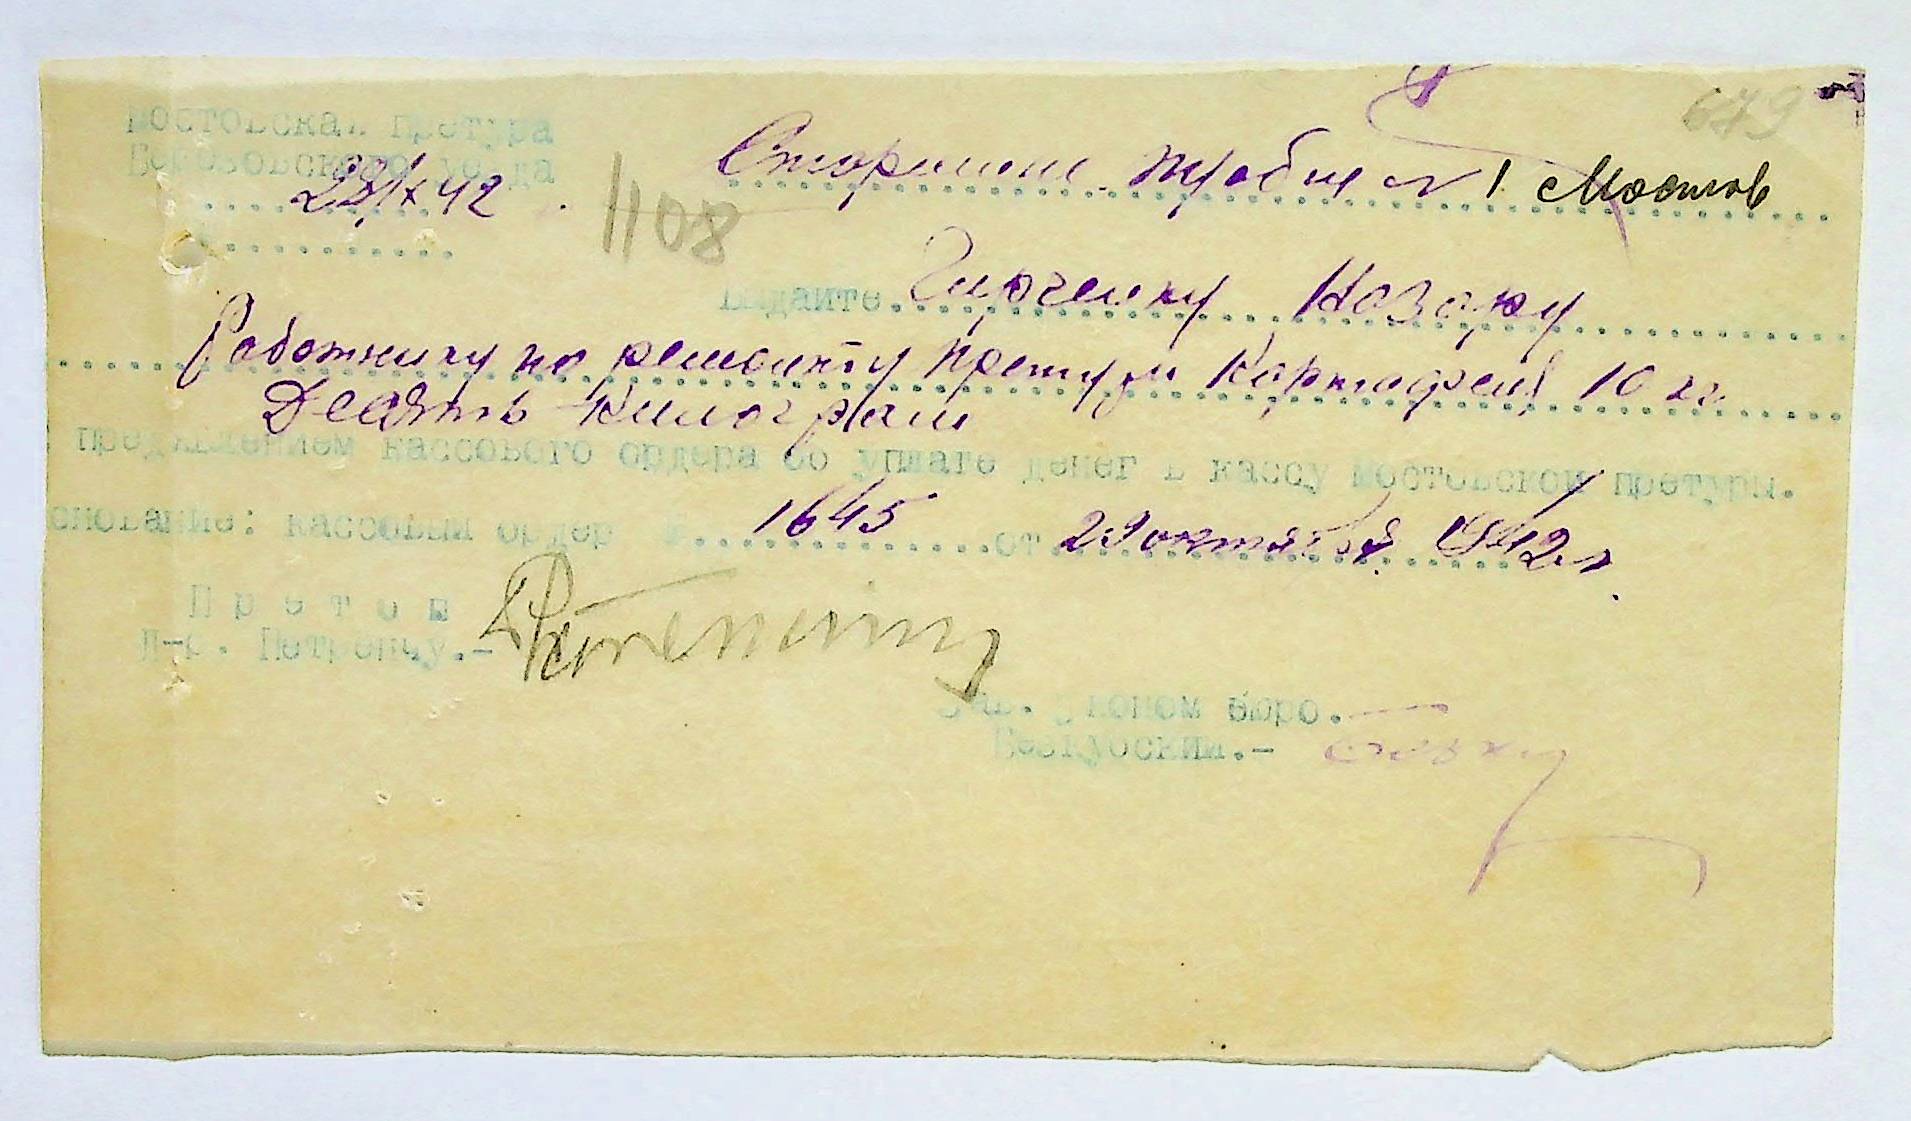 679
Мостовская претура
Березовского уезда
29/X 42
1108
Старшине трудбщ № 1 Мостов
Выдайте Гирченку Назару
Работнику по ремонту претуры Картофеля 10 кг.
Десять килограм
предъявлением кассового ордера об уплате денег в кассу Мостовской претуры.
снование: кассовый ордер № 1645 от 29 октября 1942 г.
Претов
П-р. Петренчу.-
Зав. Эконом бюро.